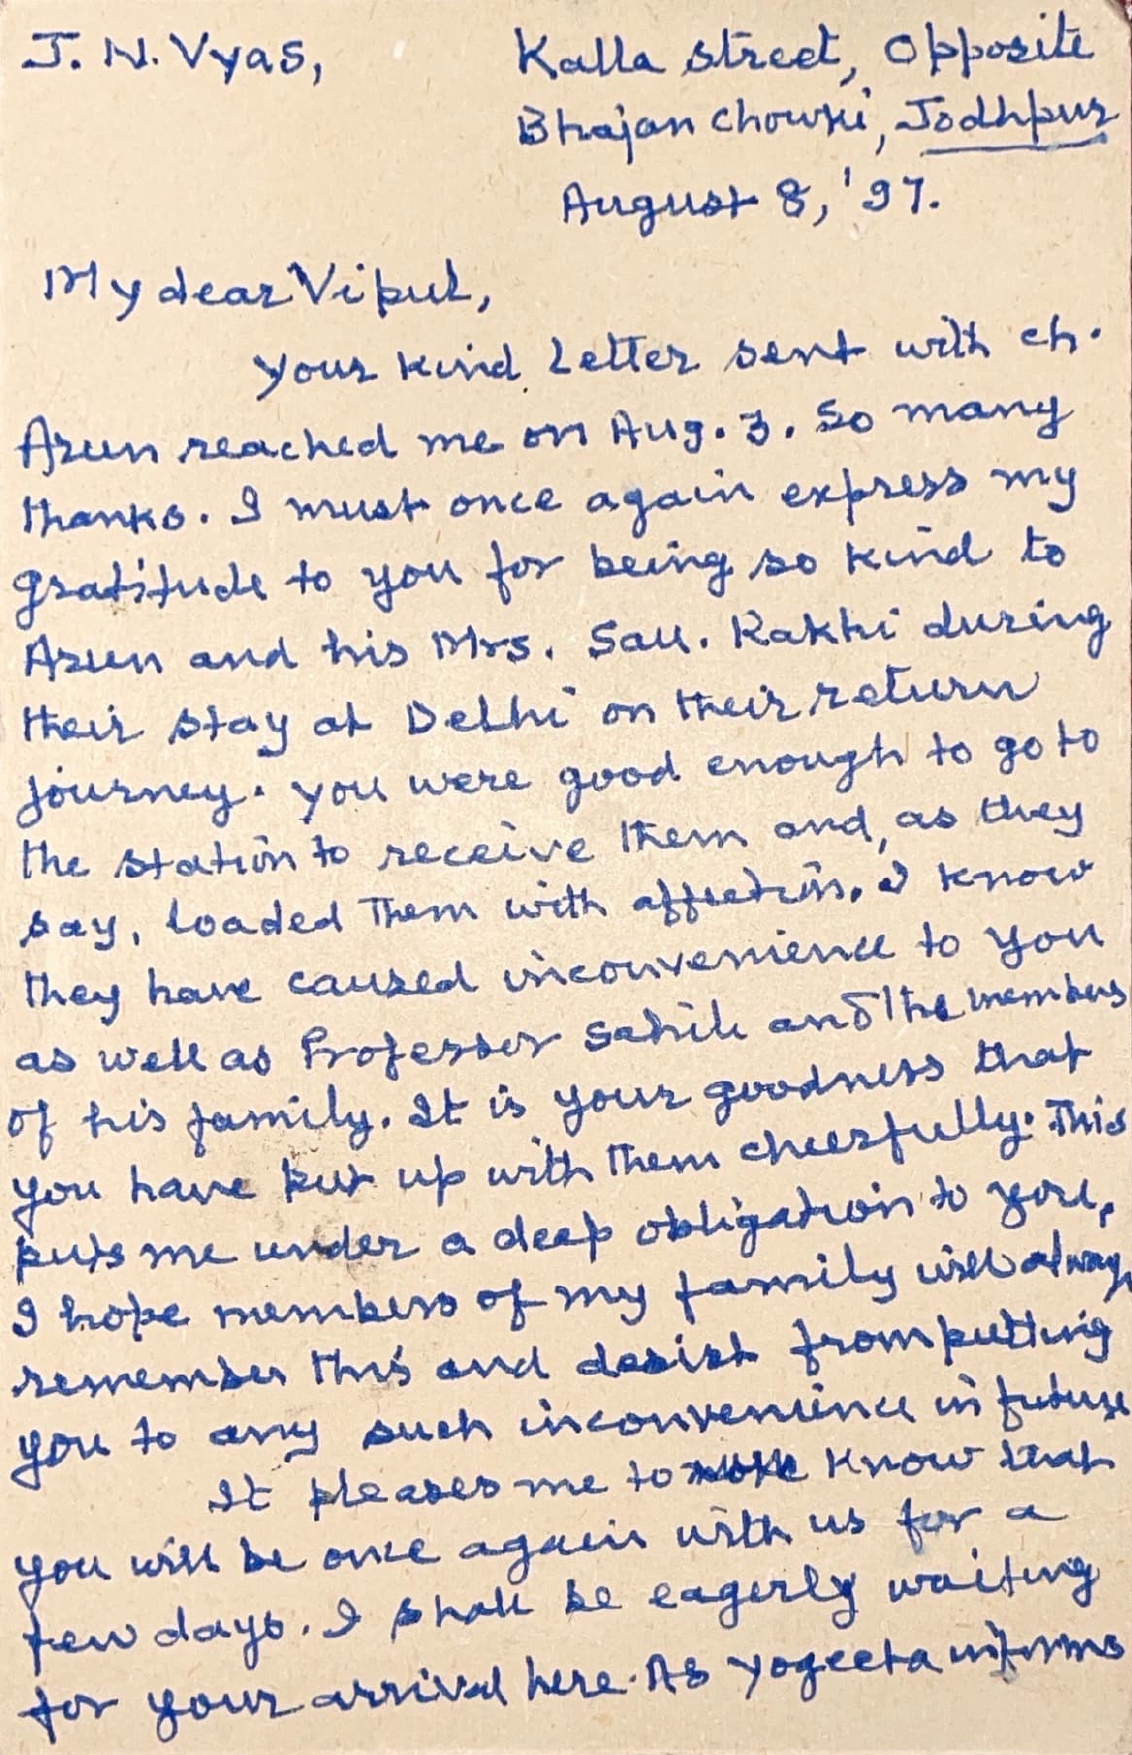 J. N. Vyas,
Kalla Street, Opposite
Bhajan Chowki, Jodhpur
August 8, '97.
My dear Vipul,
Your kind letter sent with ch.
Arun reached me on Aug. 3. So many
thanks. I must once again express my
gratitude to you for being so kind to
Arun and his Mrs. Sau. Rakhi during
their stay at Delhi on their return
journey. You were good enough to go to
the station to receive them and, as they
say, loaded them with affection. I know
they have caused inconvenience to you
as well as Professor Sahib and the members
of his family. It is your goodness that
you have put up with them cheerfully. This
puts me under a deep obligation to you,
I hope members of my family will always
remember this and desist from putting
you to any such inconvenience in future
It pleases me to know that
you will be once again with us for a
few days. I shall be eagerly waiting
for your arrival here. As Yogeeta informs